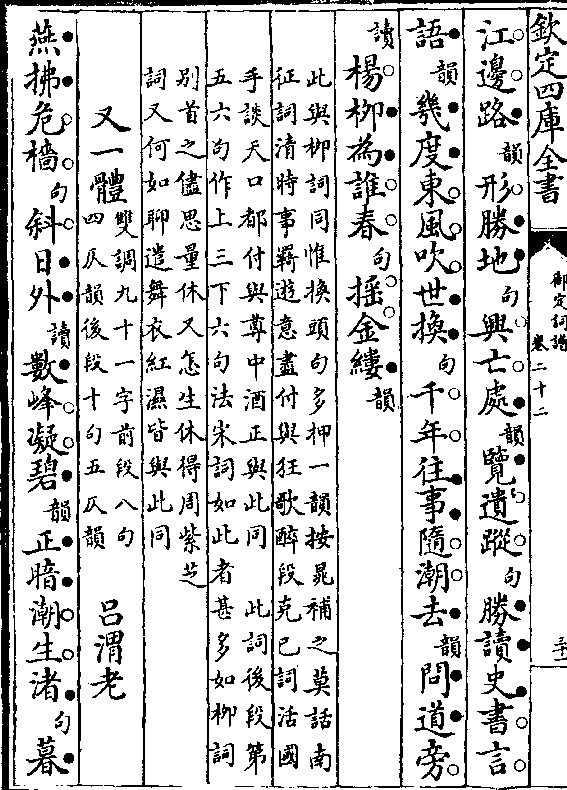 欽定四庫全書
御定詞譜
卷二十二
江邊路韻形勝地句興亡處韻覽遺蹤句勝讀史書言
語韻幾度東風吹世換句千年往事隨潮去韻問道旁
讀楊柳為誰春句搖金縷韻
此與柳詞同惟換頭句多押一韻按晁補之莫話南
征詞清時事羈遊意盡付與狂歌醉段克已詞活國
手談天口都付與尊中酒正與此同 此詞後段第
五六句作上三下六句法宋詞如此者甚多如柳詞
别首之儘思量休又怎生休得周紫芝
詞又何如聊遣舞衣紅濕皆與此同
又一體 雙調九十一字前段八句
四仄韻後段十句五仄韻 呂渭老
燕拂危檣句斜日外讀數峰凝碧韻正暗潮生渚句暮